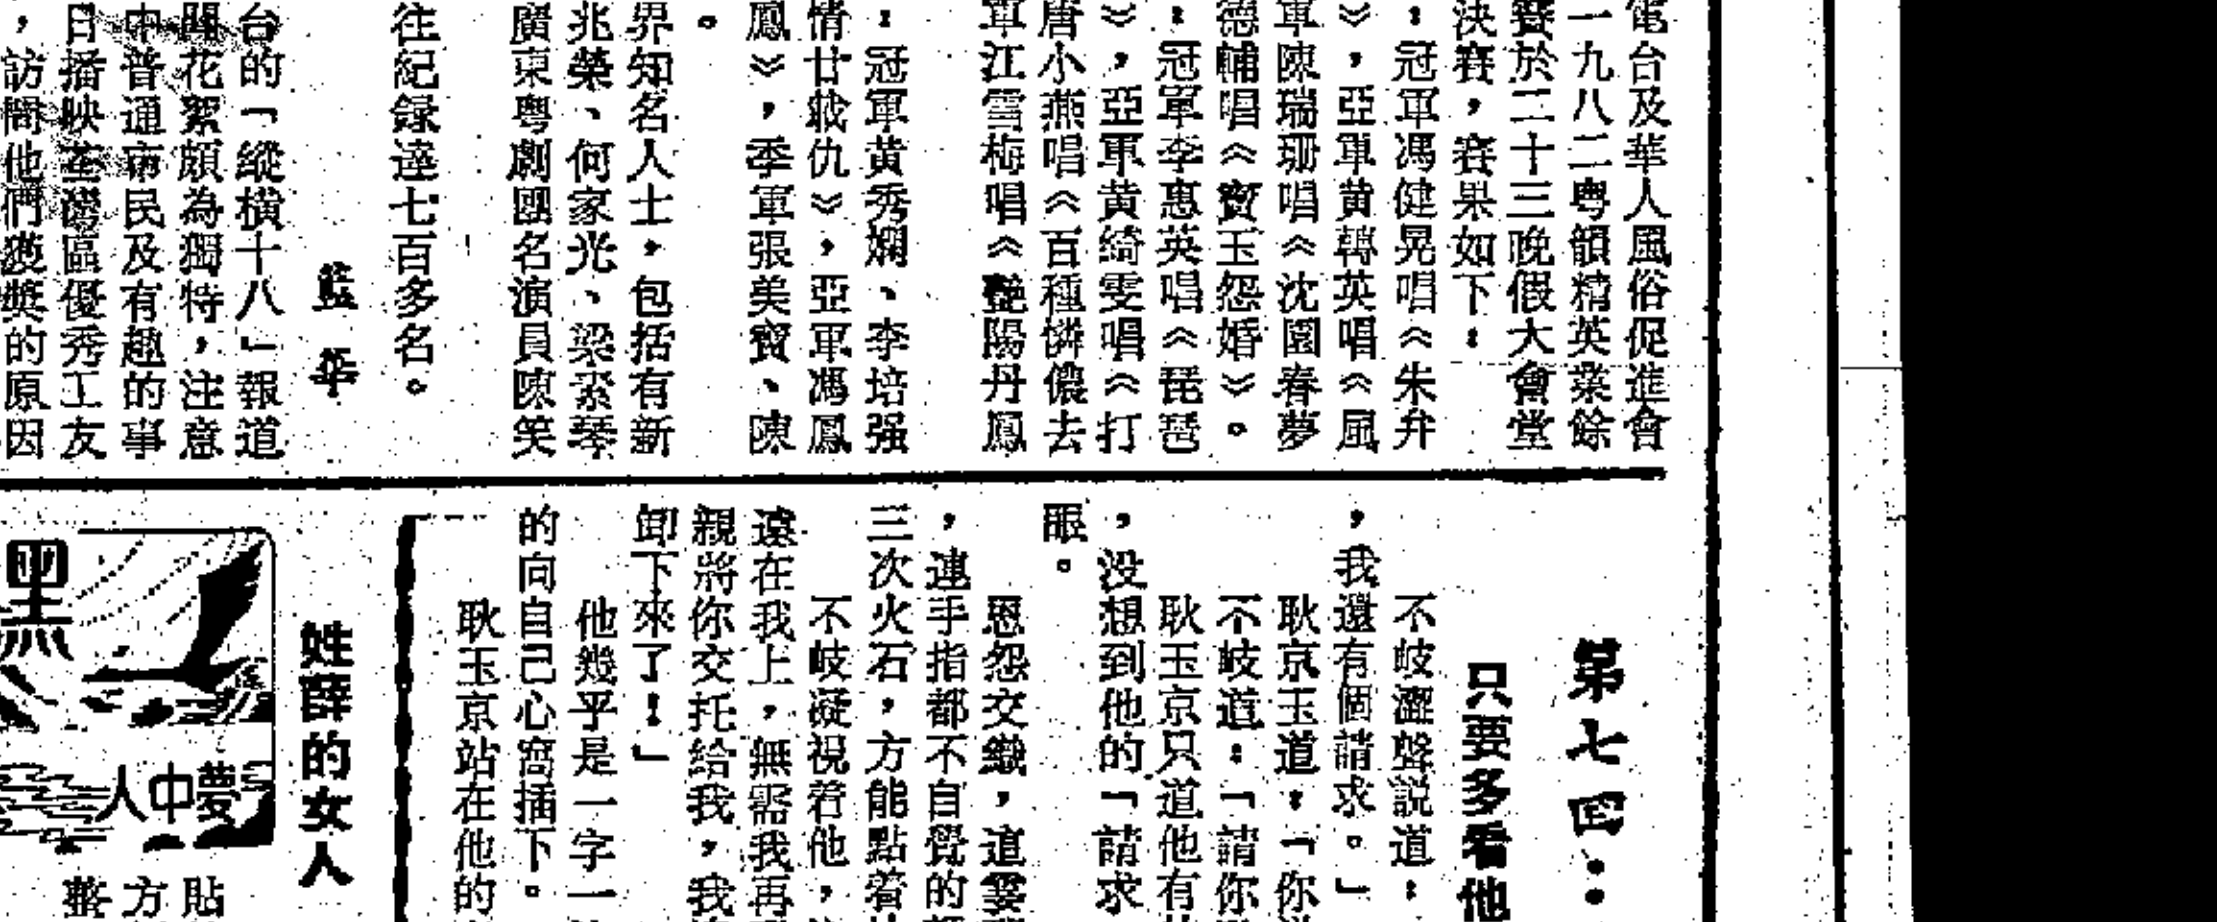 電台及華人風俗促進會
一九八二粵韻精英業餘
賽於二十三晚假大會堂
決賽，賽果如下：
：冠軍馮健晃唱《朱弁
》，亞軍黄轉英唱《風
軍陳瑞珊唱《沈園春夢
德輔唱《寶玉怨婚》。
：冠軍李惠英唱《琵琶
》，亞軍黄綺雯唱《打
唐小燕唱《百種憐儂去
軍江雪梅唱《艷陽丹鳳
：冠軍黄秀嫻、李培强
情廿載仇》，亞軍馮鳳
鳳》，季軍張美寶、陳
。
界知名人士，包括有新
兆榮、何家光、梁素琴
廣東粵劇團名演員陳笑
往紀録達七百多名。
藍華
台的「縱橫十八」報道
聞花絮頗為獨特，注意
中普通市民及有趣的事
日播映荃灣區優秀工友
，訪問他們獲獎的原因
第七四：
只要多看他
不岐澀聲説道：
，我還有個請求。」
耿京玉道：「你
不岐道：「請你
耿玉京只道他有
，没想到他的「請求
眼。
恩怨交織，這霎
，連手指都不自覺的
三次火石，方能點着
不岐凝視着他，
遠在我上，無需我再
親將你交托給我，我
卸下來了！」
他幾乎是一字一
的向自己心窩插下。
耿玉京站在他的
姓薛的女人
黑
夢中人
貼
方
整